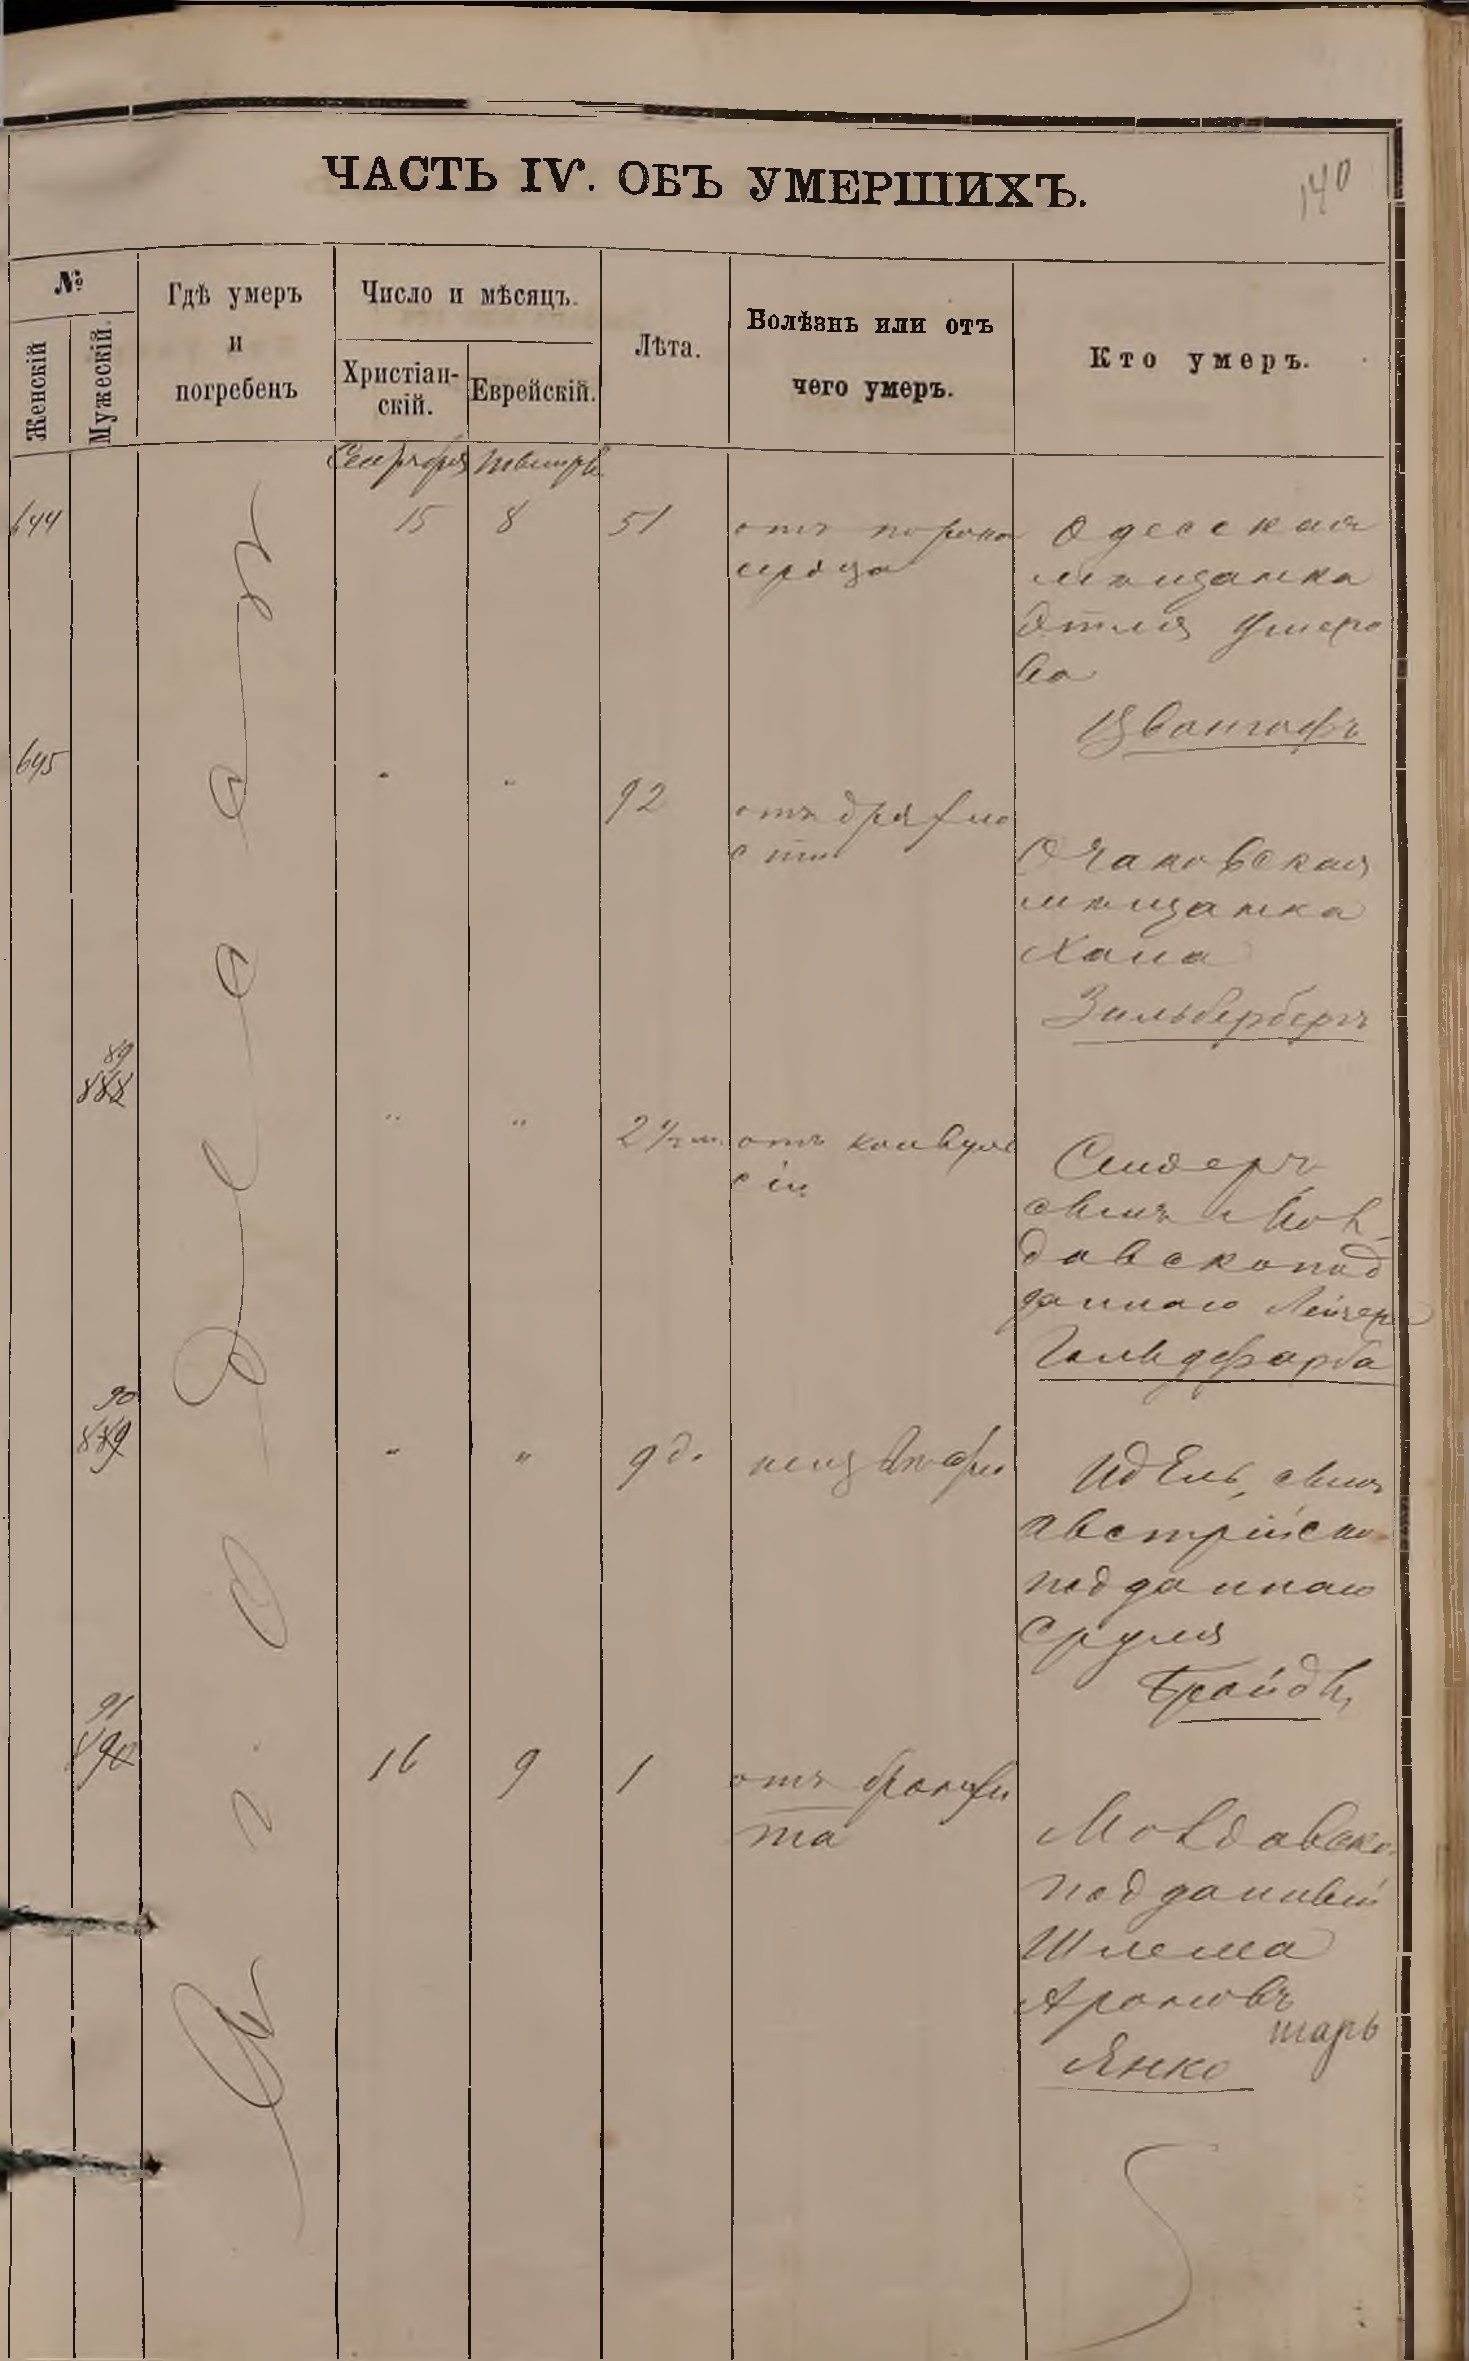 140
ЧАСТЬ IV. ОБЪ УМЕРШИХЪ.
№
Женскій
Мужескій.
Гдѣ умеръ
и
погребенъ
Число и мѣсяцъ.
Христіан-
скій.
Еврейскій.
Лѣта.
Болѣзнь или отъ
чего умеръ.
Кто умеръ.
Сентября
644
15
8
51
отъ порока
сердца
Одесская
мѣщанка
Этля Ушеро
ва
Цвангофъ
645
"
"
92
отъ дряхло
сти
Очаковская
мѣщанка
Хана
Зильбербергъ
89
888
"
"
2 ½ м.
отъ конвуль
сіи
сынъ Мол-
давскопод
даннаго Лейзера
Гольдфарба
90
889
"
"
9 д.
неизвѣстно
Идель, сынъ
Австрійско
подданнаго
Сруля
Бройды
91
890
16
9
1
отъ бронхи
та
Молдавско-
подданный
Шлема
Ароновъ
шаръ
Янко